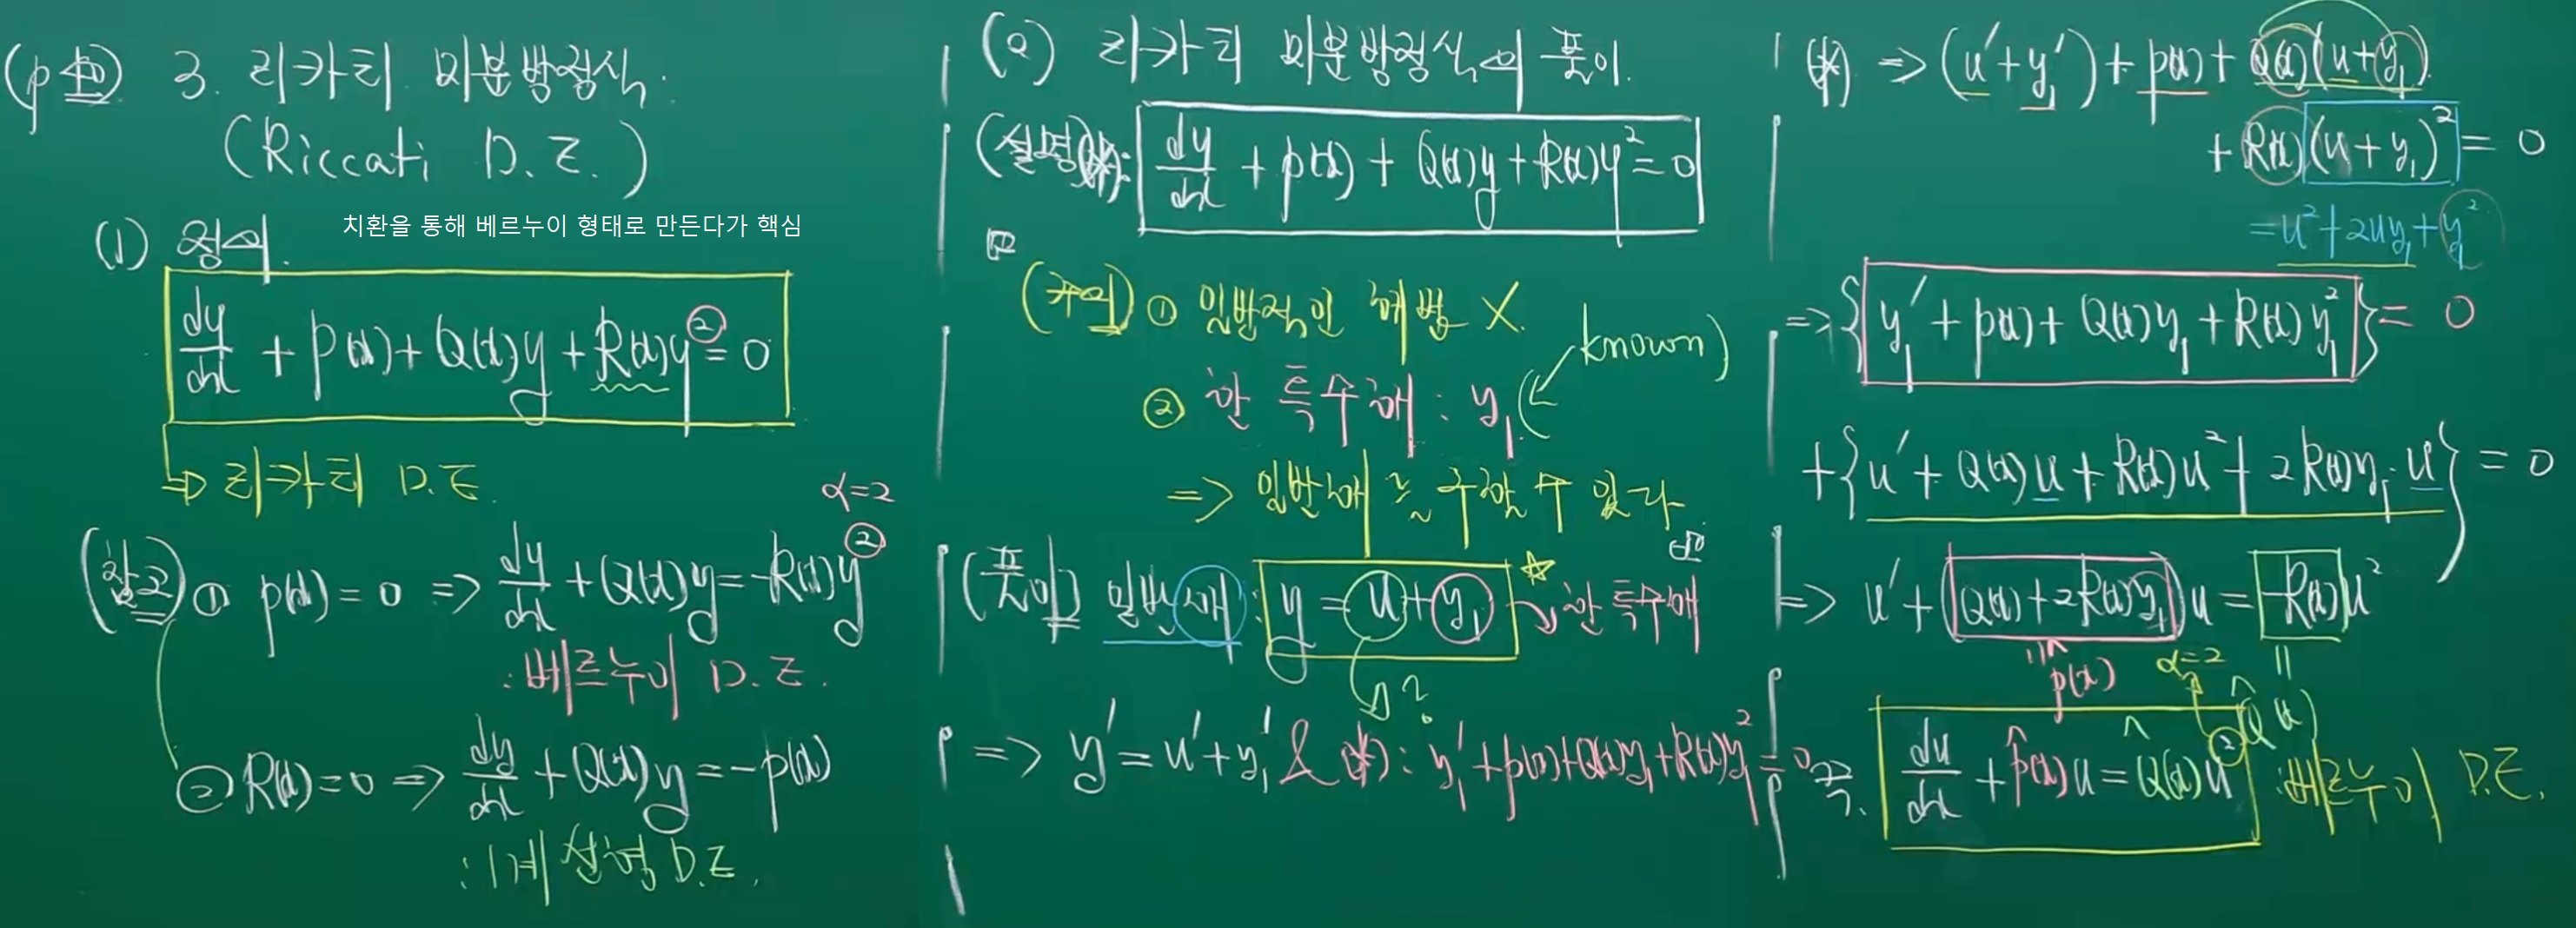 (p 40) 3. 리카티 미분방정식.
(Riccati D.E.)
(1) 정의.
치환을 통해 베르누이 형태로 만든다가 핵심
dy/dx + p(x) + Q(x)y + R(x)y² = 0
↳ 리카티 D.E.
(참고) ① p(x) = 0 ⇒ dy/dx + Q(x)y = -R(x)y² α=2
: 베르누이 D.E.
② R(x) = 0 ⇒ dy/dx + Q(x)y = -p(x)
: 1계 선형 D.E.
(2) 리카티 미분방정식의 풀이.
(설명) (*): dy/dx + p(x) + Q(x)y + R(x)y² = 0
(주의) ① 일반적인 해법 X.
② 한 특수해 : y₁ (known)
⇒ 일반해를 구할 수 있다
(풀이) 일반해 : y = u + y₁ ☆ → 한 특수해
?
⇒ y' = u' + y₁' & (*): y₁' + p(x) + Q(x)y₁ + R(x)y₁² = 0
(*) ⇒ (u' + y₁') + p(x) + Q(x)(u + y₁)
+ R(x)(u + y₁)² = 0
= u² + 2uy₁ + y₁²
⇒ {y₁' + p(x) + Q(x)y₁ + R(x)y₁²} = 0
+ {u' + Q(x)u + R(x)u² + 2R(x)y₁·u} = 0
⇒ u' + (Q(x) + 2R(x)y₁)u = -R(x)u²
|| p̂(x) α=2 || Q̂(x)
즉. du/dx + p̂(x)u = Q̂(x)u² : 베르누이 D.E.